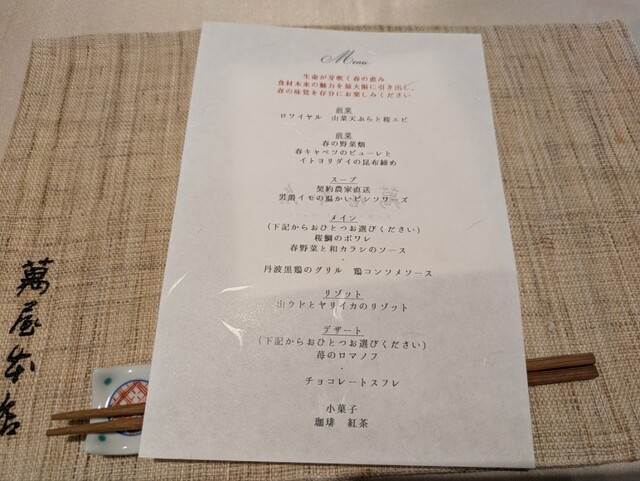 Menu
生命が芽吹く春の恵み
食材本来の魅力を最大限に引き出し、
春の味覚を存分にお楽しみください
前菜
ロワイヤル 山菜天ぷらと桜エビ
前菜
春の野菜畑
春キャベツのピューレと
イトヨリダイの昆布締め
スープ
契約農家直送
男爵イモの温かいビシソワーズ
メイン
(下記からおひとつお選びください)
桜鯛のポワレ
春野菜と和カラシのソース
・
丹波黒鶏のグリル 鶏コンソメソース
リゾット
山ウドとヤリイカのリゾット
デザート
(下記からおひとつお選びください)
苺のロマノフ
・
チョコレートスフレ
小菓子
珈琲 紅茶
萬屋本店